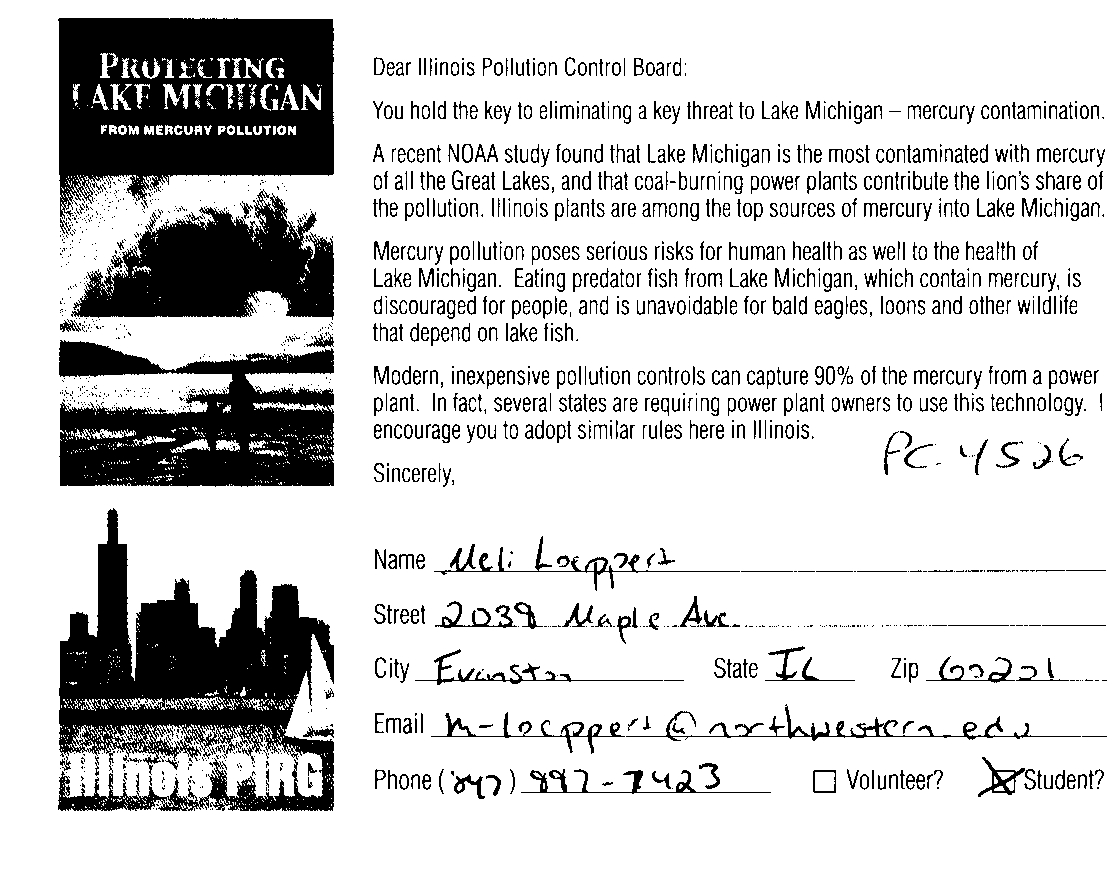 PROTECTING
LAKE MICHIGAN
FROM MERCURY POLLUTION
Illinois PIRG
Dear Illinois Pollution Control Board:
You hold the key to eliminating a key threat to Lake Michigan – mercury contamination.
A recent NOAA study found that Lake Michigan is the most contaminated with mercury
of all the Great Lakes, and that coal-burning power plants contribute the lion's share of
the pollution. Illinois plants are among the top sources of mercury into Lake Michigan.
Mercury pollution poses serious risks for human health as well to the health of
Lake Michigan. Eating predator fish from Lake Michigan, which contain mercury, is
discouraged for people, and is unavoidable for bald eagles, loons and other wildlife
that depend on lake fish.
Modern, inexpensive pollution controls can capture 90% of the mercury from a power
plant. In fact, several states are requiring power plant owners to use this technology. I
encourage you to adopt similar rules here in Illinois.
PC. 4526
Sincerely,
Name Meli Loeppert
Street 2038 Maple Ave.
City Evanston State IL Zip 60201
Email m-loeppert@northwestern.edu
Phone (847) 897-7423 Volunteer? Student?